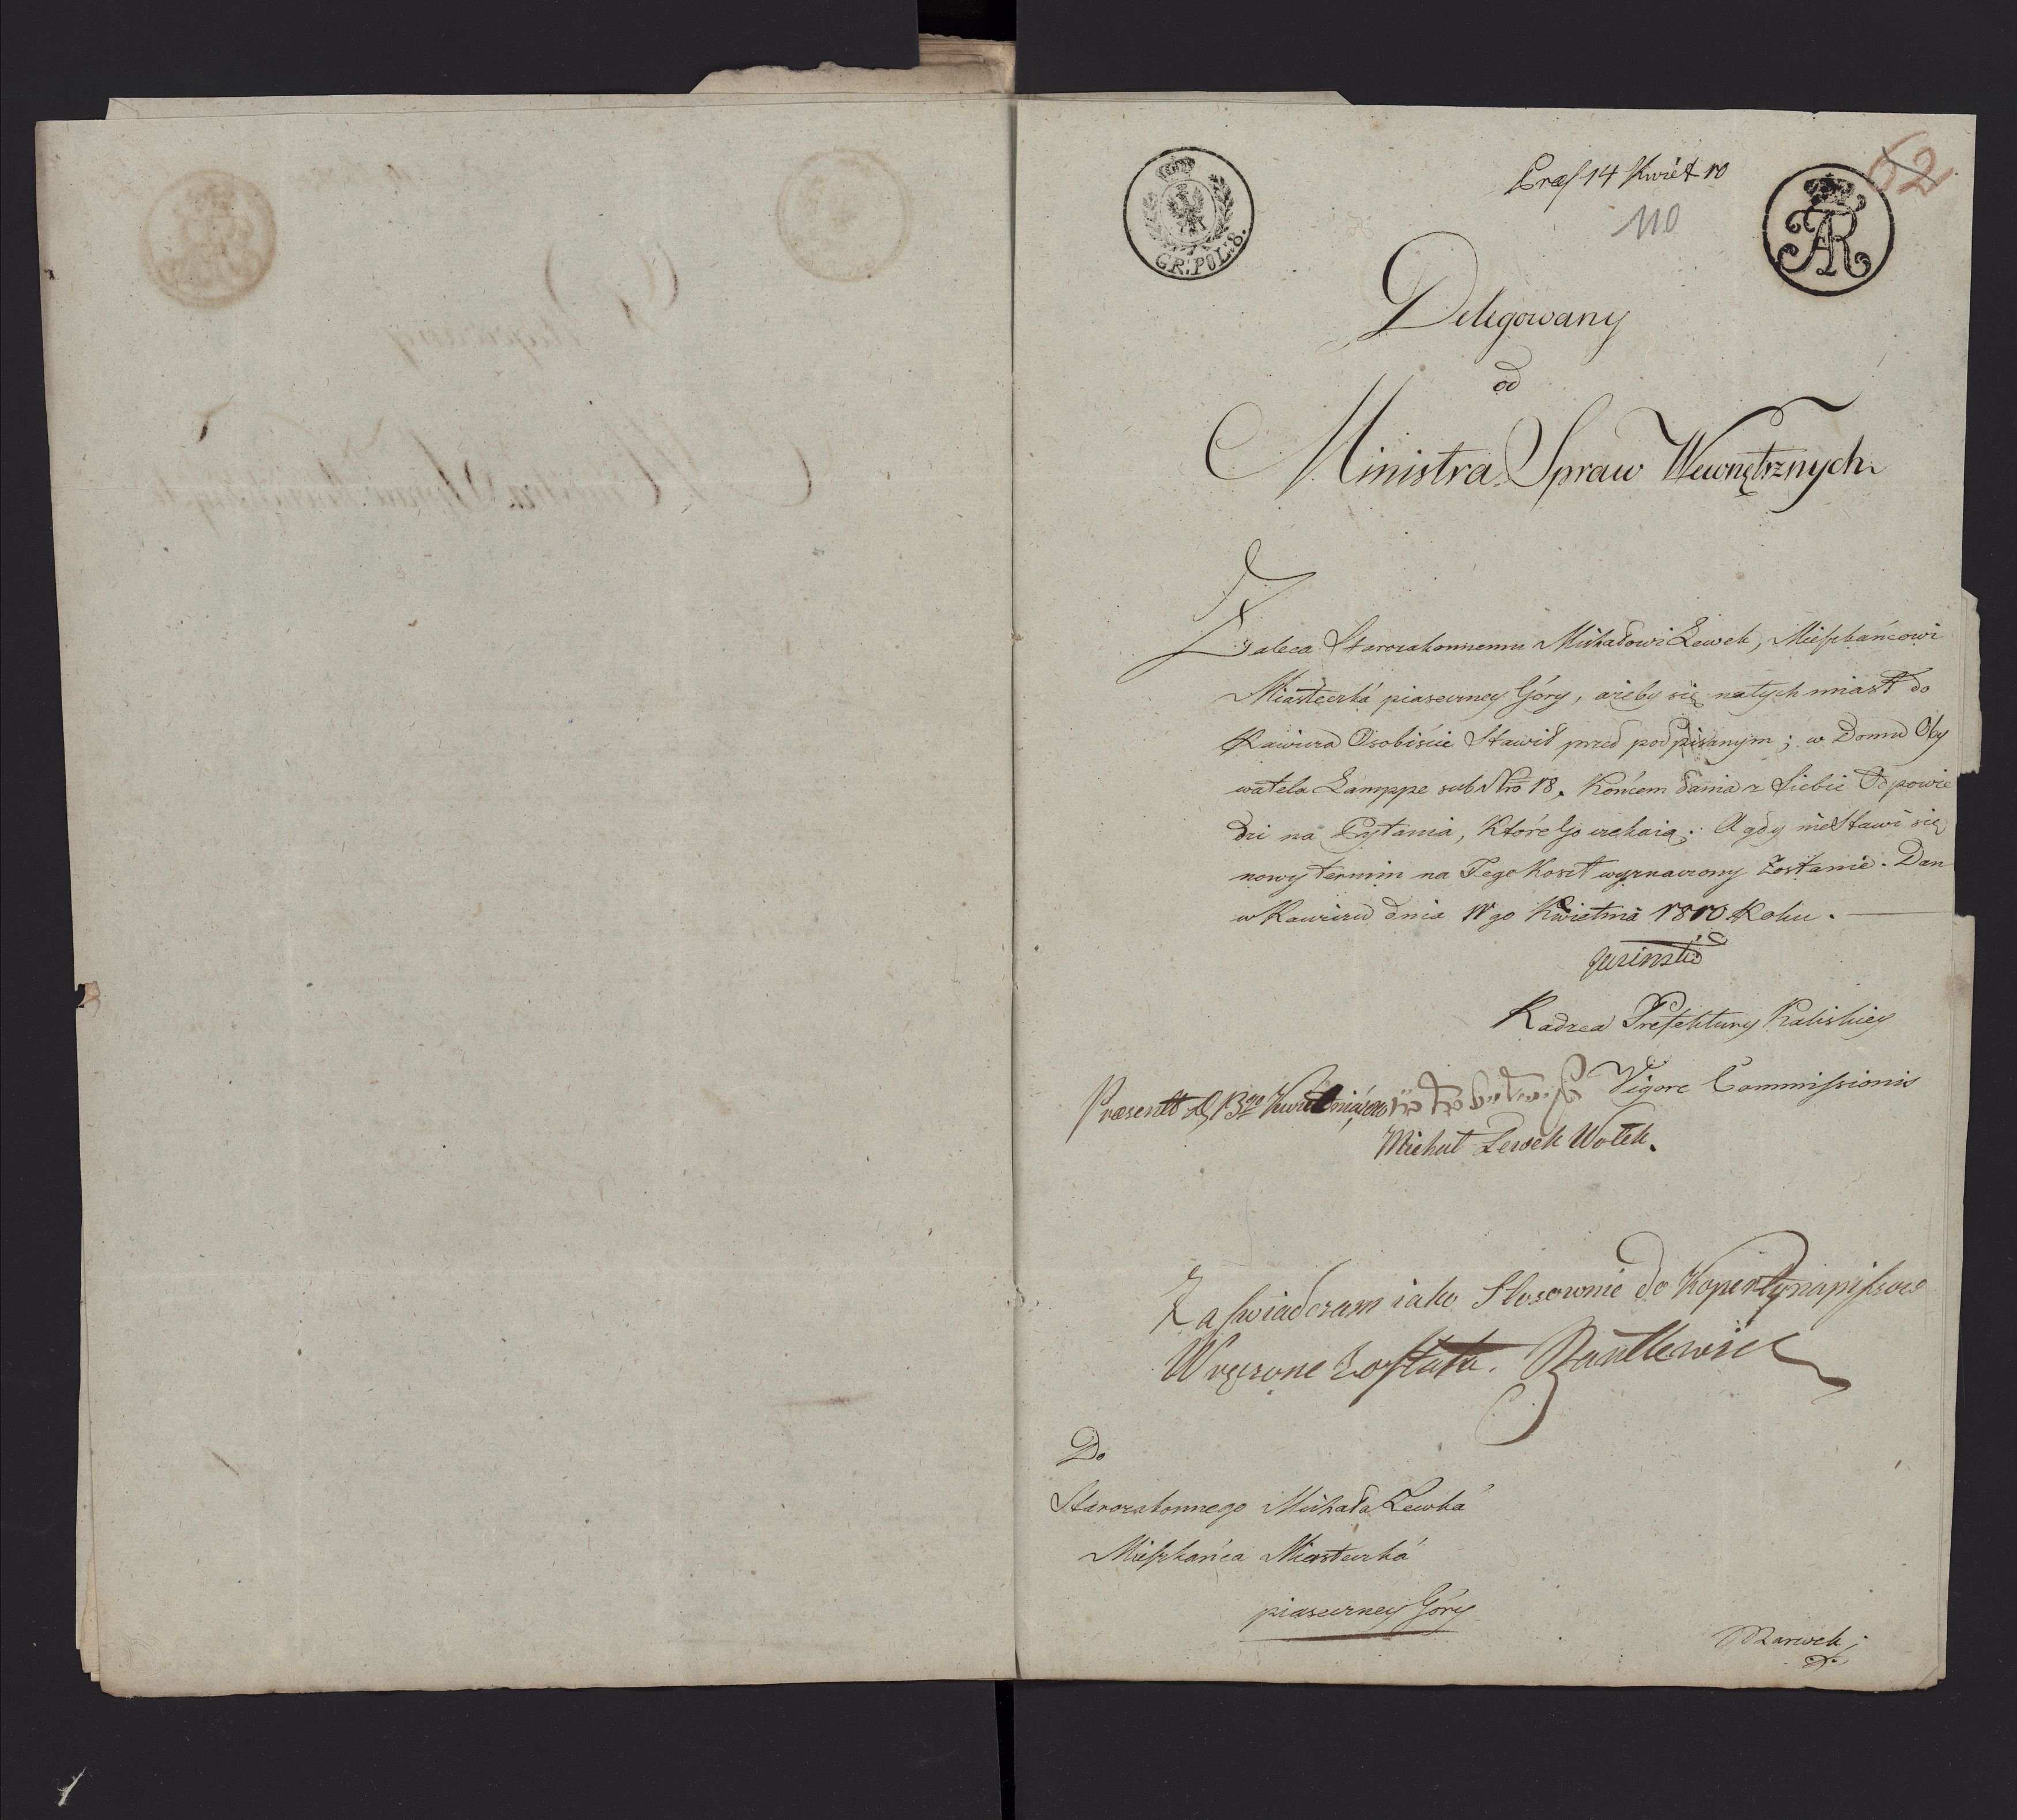 Præs 14 Kwiet 10
62
110
GR. POL. 8.
AR
Delegowany
od
Ministra Spraw Wewnętrznych
Zaleca Starozakonnemu Michałowi Lewek, Mieszkańcowi
Miasteczká piaseczney Góry, ażeby się natych miast do
Rawicza Osobiście Stawił przed podpisanym; w Domu Oby
watela Lamppe sub Nro 18, Końcem dania z siebie Odpowie
dzi na Pytania, Które Go czekaią. A gdy nie Stawi się
nowy termin na Jego Koszt wyznaczony Zostanie. Dan
w Rawiczu dnia 11go Kwietniá 1810 Roku.
Radzca Prefektury Kaliskiey
Vigore Commissionis
Præsentt d 13go Kwietnia
Michał Lewek Wołek.
Zaswiadczam iako Stosownie do Koperty
Wręczone Zostało.
Do
Starozakonnego Michała Lewká
Mieszkańca Miasteczká
piaseczney Góry